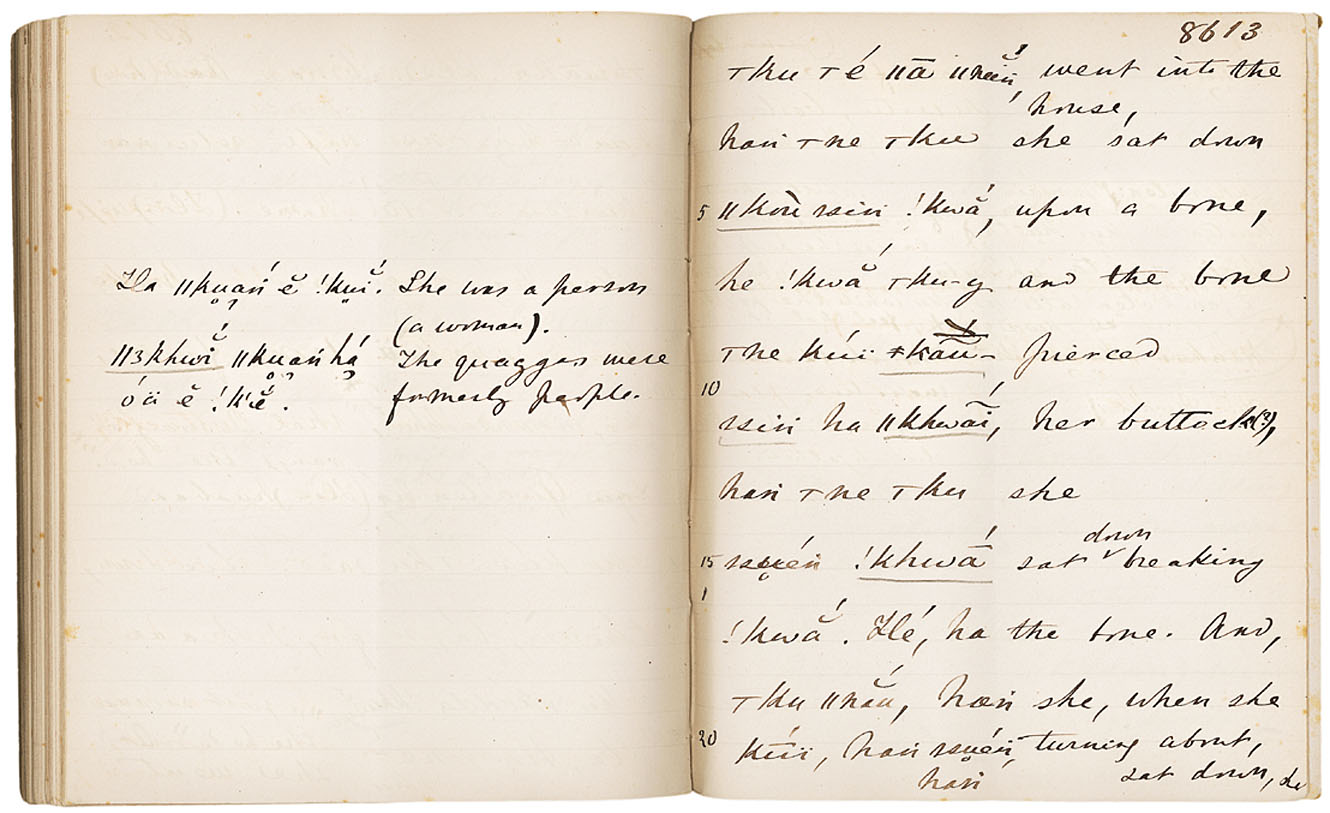 Ha ǁkuaṅ́ ĕ !kuĭ́. She was a person
(a woman).
ǁ3khwĭ́ ǁkuaṅ há The quaggas were
óä ĕ !k'ĕ́. formerly people.
8613
⊤ku ⊤é ǁā went into the
house,
haṅ ⊤ne ⊤ku she sat down
5 ǁkoù ssiṅ !kwắ, upon a bone,
he !kwắ ⊤ku-g and the bone
⊤ne kúï pierced
10
ssiṅ ha ǁkhwaī́, her buttock(?),
haṅ ⊤ne ⊤ku she
down
15 ssuéṅ !khwā́ sat breaking
1
!kwắ. Hé, ha the bone. And,
⊤ku ǁnắu, haṅ she, when she
20 kúï, haṅ ssuéṅ, turning about,
haṅ sat down, she